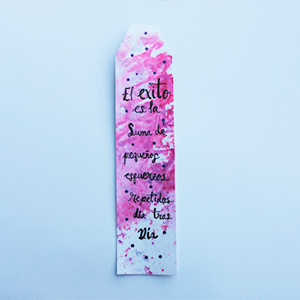 El exito
es la
Suma de
pequeños
esfuerzos
repetidos
día tras
Día